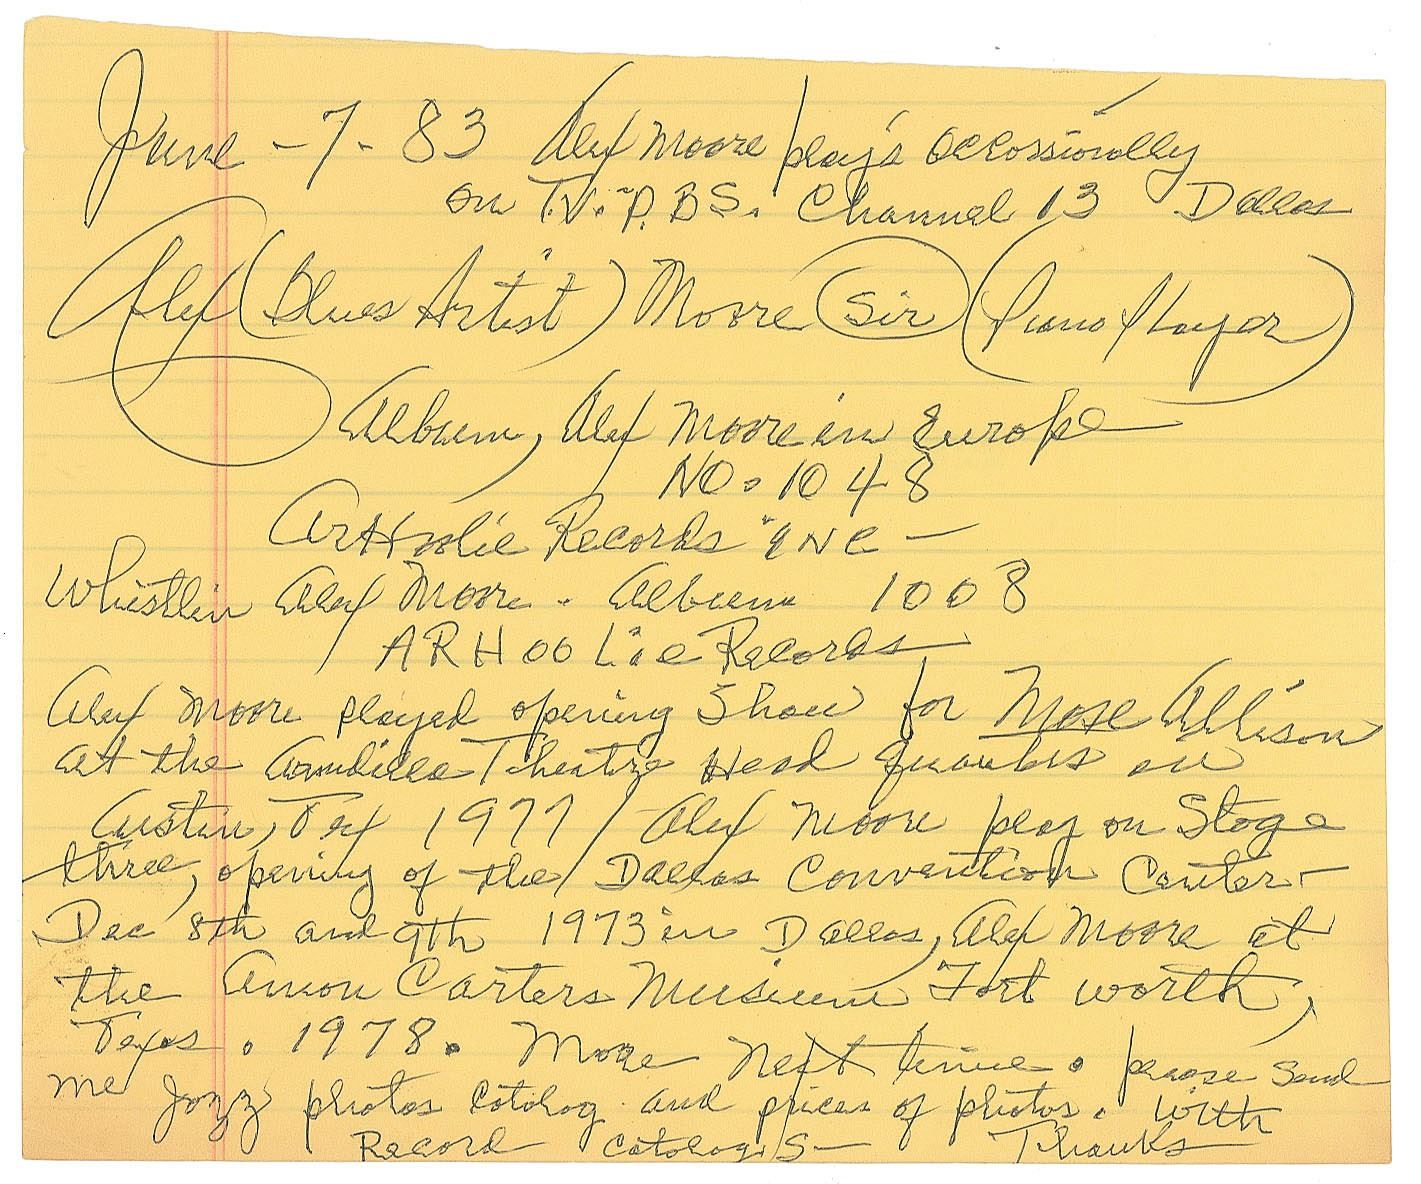 June - 7 - 83 Alex Moore play's occossionolly
on T.V. P.B.S. Channel 13 Dallas
Alex (Blues Artist) Moore (Sir) (Piano Player)
Album, Alex Moore in Europe
NO. 1048
ArHoolie Records INC -
Whistlin Alex Moore. Album 1008
ARHooLie Records
Alex Moore played opening Show for Mose Allison
at the Armdillo Theatre Head quarters in
Austin, Tex 1977 / Alex Moore play on Stage
three, opening of the / Dallas Convention Center -
Dec 8th and 9th 1973 in Dallas, Alex Moore at
the Amon Carters Museum Fort worth,
Texas. 1978. More Next time. please send
me Jozz photos cotolog and prices of photos. with
Record cotologs - Thanks